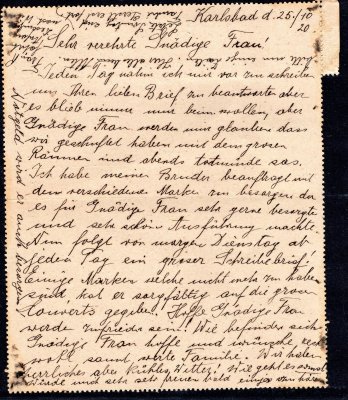 Karlsbad d. 25./10
20
Sehr verehrte Gnädige Frau!
Jeden Tag nahm ich mir vor zu schreiben
um Ihren lieben Brief zu beantworten aber
es blieb immer nur beim wollen, aber
Gnädige Frau werden mir glauben dass
wir geschuftet haben mit dem grossen
Räumen und abends todmüde sas.
Ich habe meinen Bruder beauftragt mit
dem verschiedene Marken zu besorgen da
es für Gnädige Frau sehr gerne besorgte
und sehr schön Ausführung machte.
Nun folgt von morgen Dienstag ab
jeden Tag ein grosser Schreibebrief!
Einige Marken welche nicht mehr zu haben
sind hat er sorgfältig auf die grosse
Couverts gegeben! Hoffe Gnädige Frau
werden zufrieden sein!! Wie befinden sich
Gnädige Frau hoffe und wünsche recht
wohl samt werte Familie. Wir haben
herrliches aber kühles Wetter! Wie geht es sonst
würde mich sehr freuen bald einige von
Notgeld wird er auch besorgen